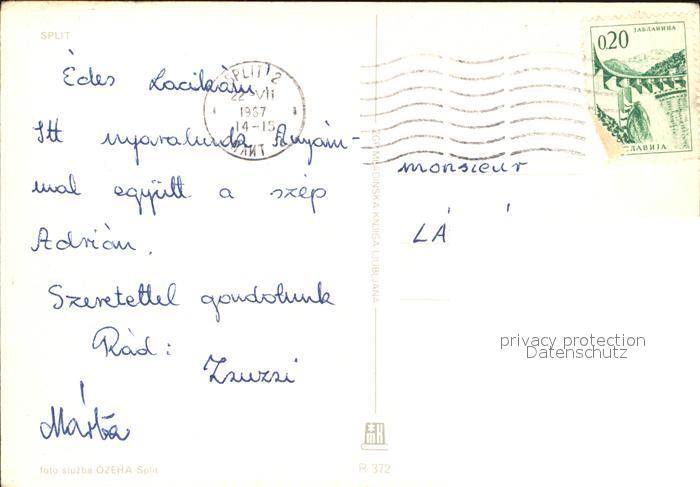 SPLIT
Édes Lacikám!
Itt nyaralunk Anyám-
mal együtt a szép
Adrián.
Szeretettel gondolunk
Rád:
Zsuzsi
Márta
foto služba OZEHA Split
SPLIT 2
22 VII
1967
14-15
СПЛИТ
MLADINSKA KNJIGA LJUBLJANA
R 372
0,20
ЈАБЛАНИЦА
monsieur
LÁ
privacy protection
Datenschutz